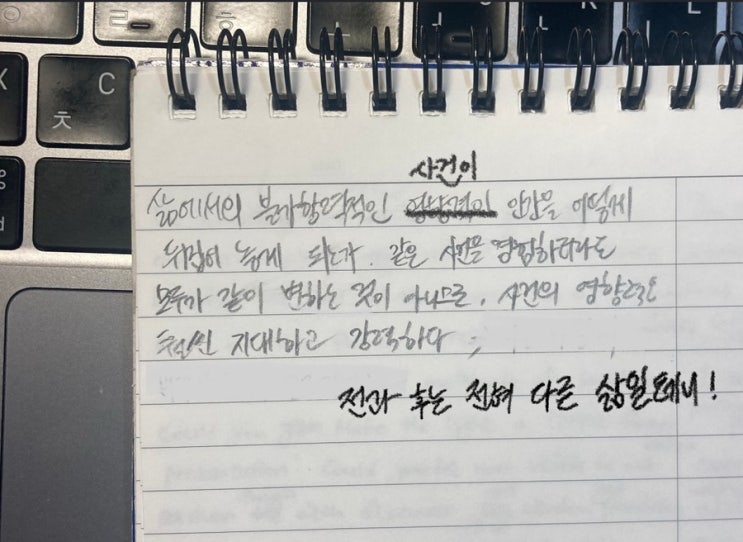 ㄹ ㅎ
C
ㅊ
X
사건이
삶에서의 불가항력적인 인간을 어떻게
뒤집어 놓게 되는가. 같은 사건을 경험하더라도
모두가 같이 변하는 것이 아니므로, 사건의 영향력은
훨씬 지대하고 강력하다 ;
전과 후는 전혀 다른 삶일테니!